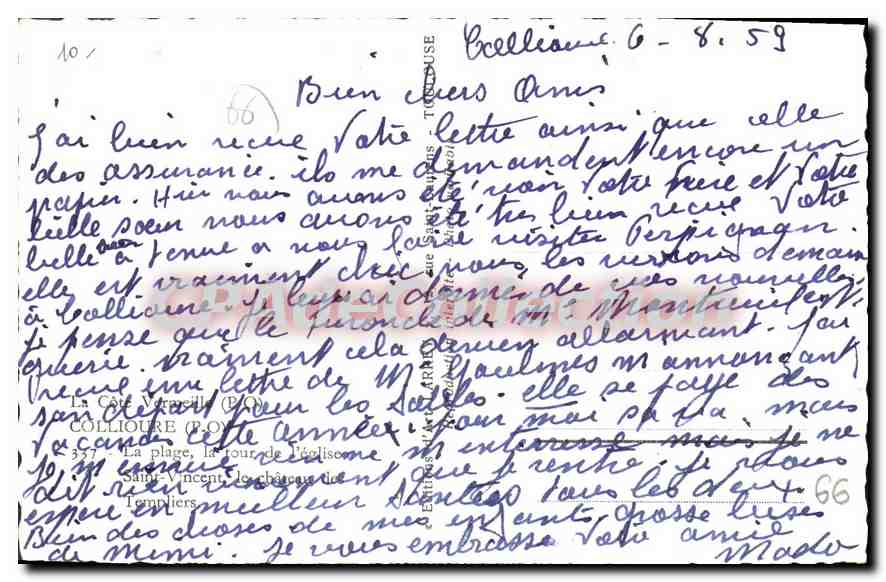 10
Collioure 6 - 8. 59
66
Bien chers Amis
J'ai bien recue Votre lettre ainsi que celle
des assurance. ils me demandent encore un
papier. Hier nous avons été voir Votre frère et Votre
belle sœur nous avons été très bien recue Votre
belle sœur a tenue a nous faire visiter Perpignan.
elle est vraiment chic nous les verrons demain
à Collioure. je leurai donnés de vos nouvelles.
je pense que le furoncle de Mr est
guerie. vraiment cela devien allarmant. J'ai
recue une lettre de M m'annonçant
son départ pour les Sables. elle se paye des
Vacances cette année. Pour moi sa va. mais
je m'ennuie on ne m'interresse mais je ne
dit rien vivement que je rentre. je vous
espere en meilleur Santée tous les deux.
Bien des choses de mes enfants grosse bises
de Mimi. je vous embrasse Votre amie
Mado
La Côte Vermeille (P.O)
COLLIOURE (P.-O)
337 - La plage, la tour de l'église
Saint-Vincent, le château des
Templiers
Editions d'Art LARREY, rue Saint-Laurens - TOULOUSE
66